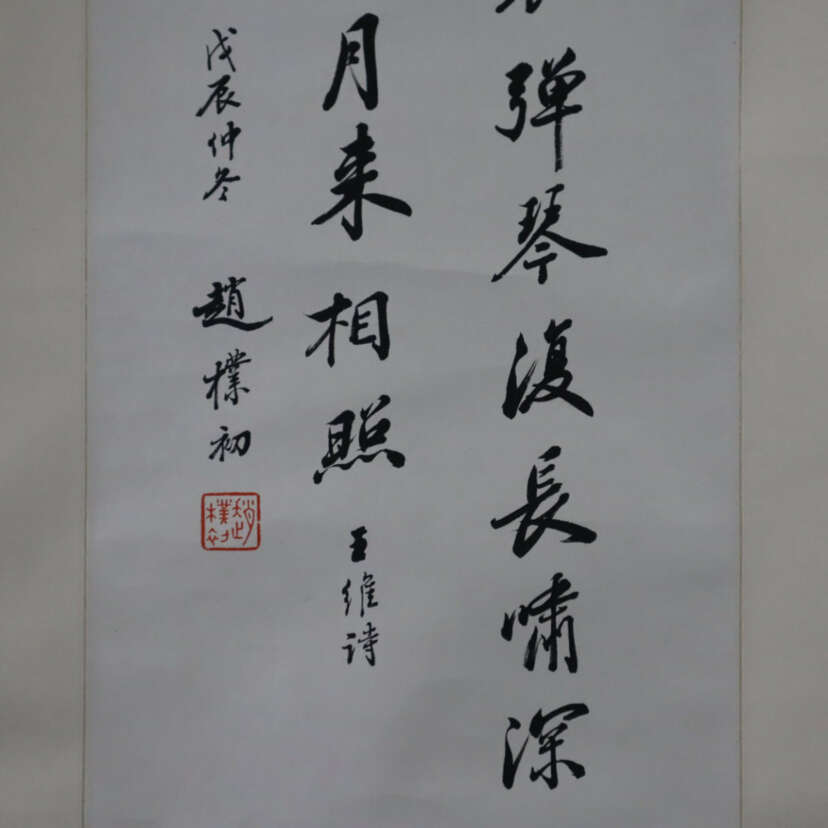 弹琴復長嘯深
月来相照
王維詩
戊辰仲冬
趙樸初
趙樸初